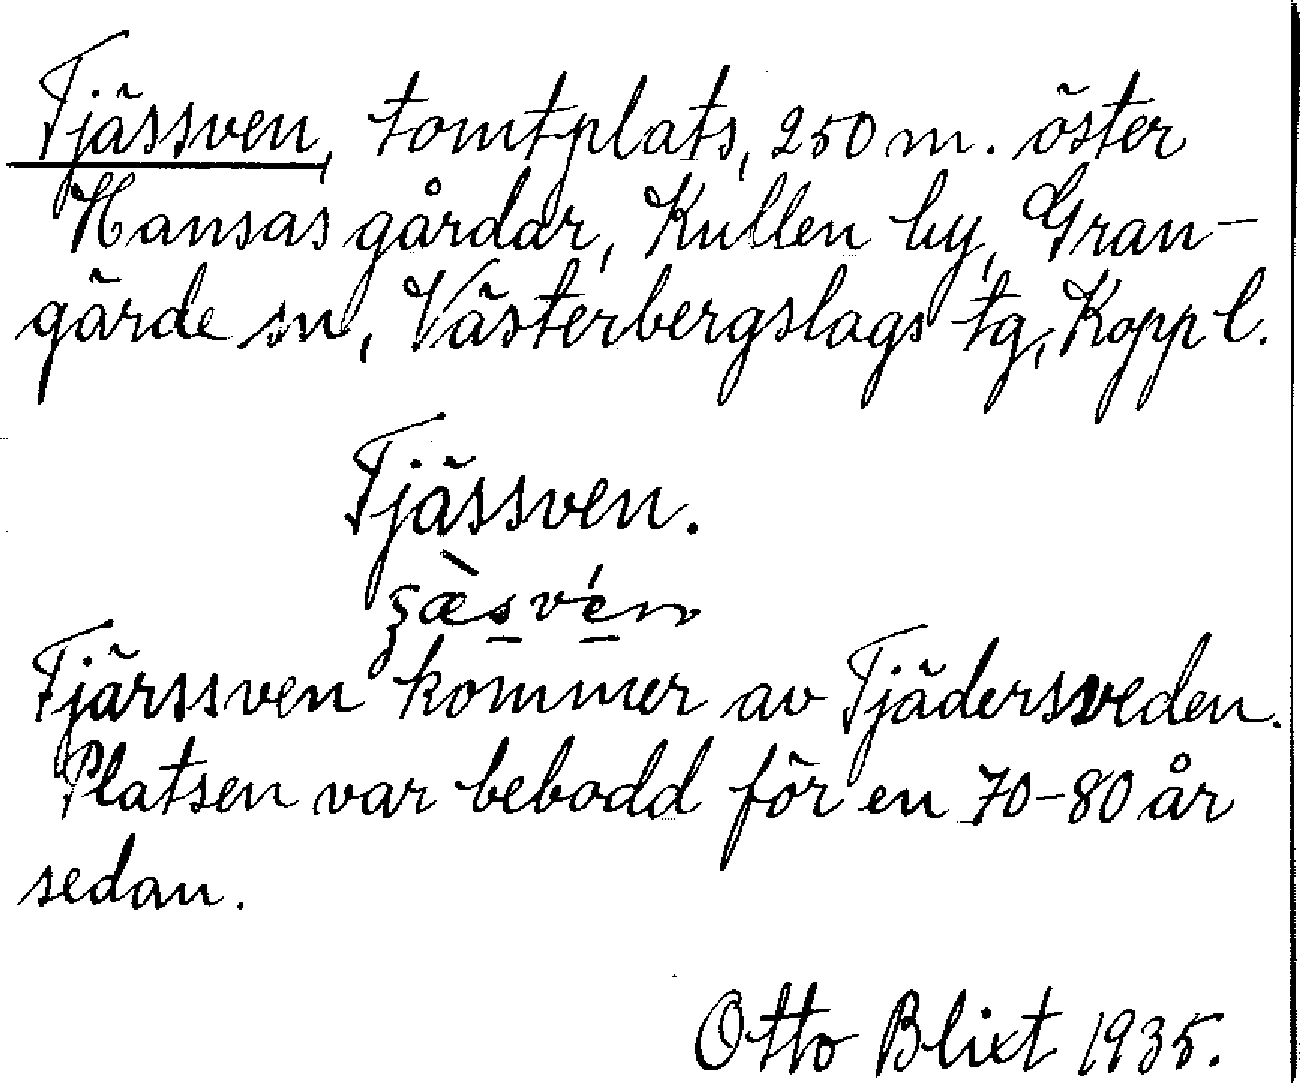 Tjässven, tomtplats, 250 m. öster
Hansas gårdar, Kullen by, Gran-
gärde sn, Västerbergslags tg, Koppl.
Tjässven.
Tjärssven kommer av Tjädersveden.
Platsen var bebodd för en 70-80 år
sedan.
Otto Blixt 1935.